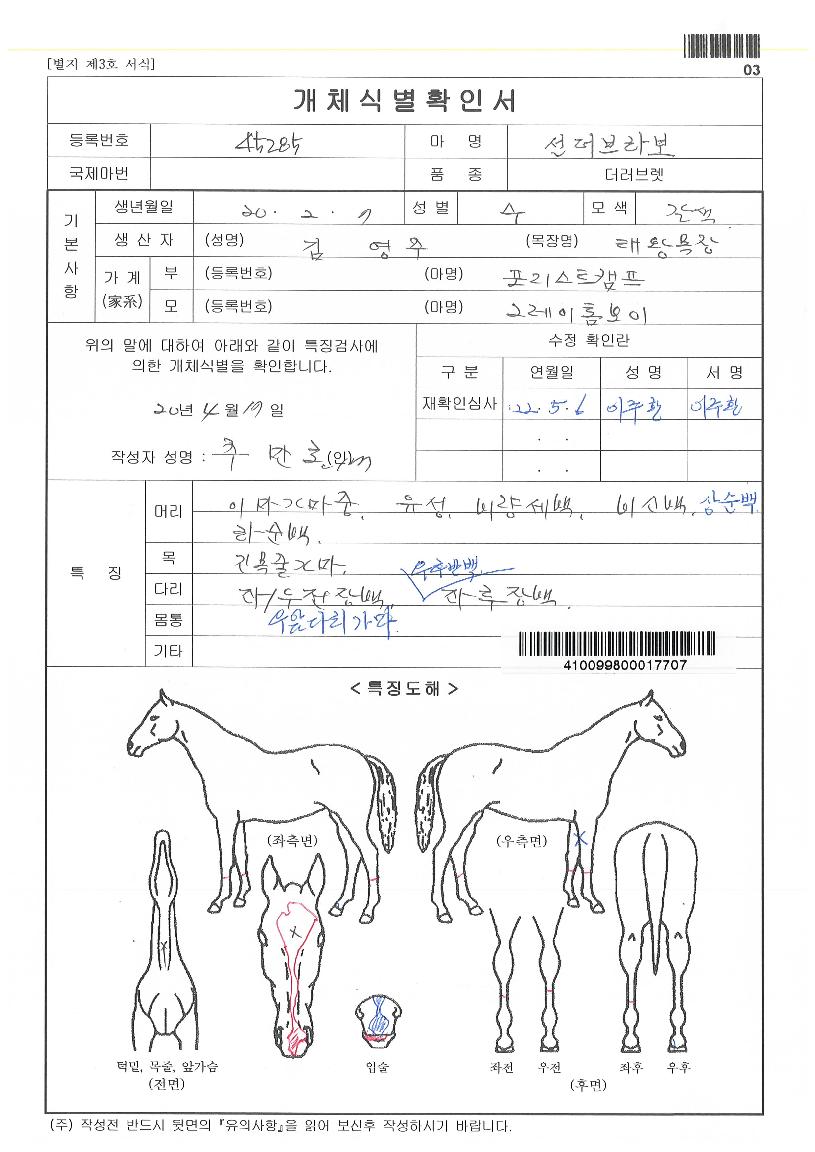 03
[별지 제3호 서식]
개체식별확인서
등록번호 45285 마 명 선더브라보
국제마번 품 종 더러브렛
기본사항
생년월일 20. 2. 7 성별 수 모색 갈색
생산자 (성명) 김영주 (목장명) 태왕목장
가계(家系) 부 (등록번호) (마명) 포리스트캠프
모 (등록번호) (마명) 그레이홈보이
위의 말에 대하여 아래와 같이 특징검사에
의한 개체식별을 확인합니다.
20년 4월 17일
작성자 성명 : 주만호 (인)
수정 확인란
구분 연월일 성명 서명
재확인심사 22. 5. 6 이주환 이주환
. .
. .
특 징
머리 이마가마중, 유성, 비량세백, 비신백, 상순백
하순백.
목 긴목줄가마.
우후반백
다리 좌/우전장백, 좌후장백.
몸통 우앞다리가마
기타
410099800017707
< 특징도해 >
(좌측면) (우측면)
턱밑, 목줄, 앞가슴
(전면)
입술
좌전 우전 좌후 우후
(후면)
(주) 작성전 반드시 뒷면의 『유의사항』을 읽어 보신후 작성하시기 바랍니다.